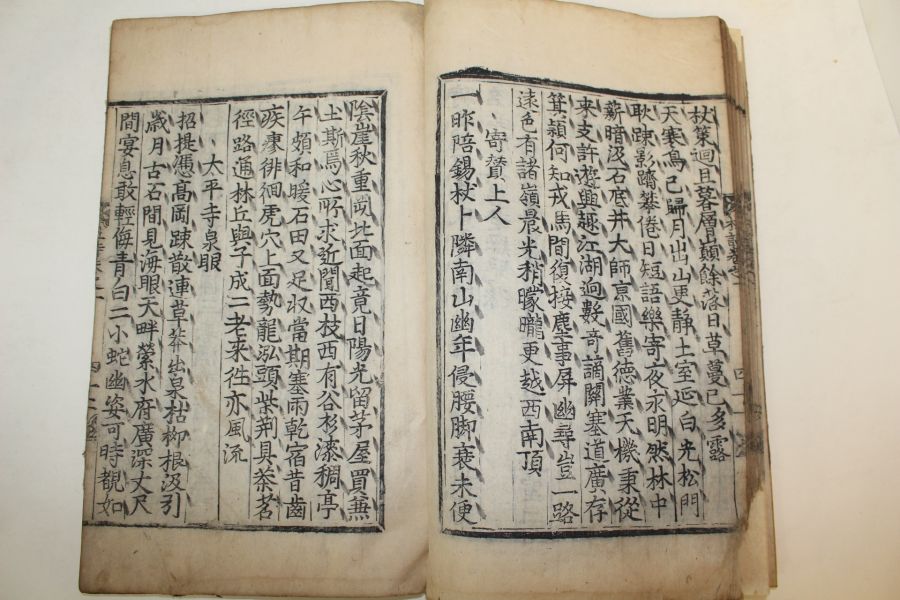 杖策迴旦暮層巔餘落日草蔓已多露
天寒鳥已歸月出山更静土室延白光松門
耿踈影躋攀倦日短語樂寄夜永明然林中
薪暗汲石底井大師京國舊德業天機秉從
來支許遊興趣江湖迥數奇謫關塞道廣存
箕潁何知戎馬間復接塵事屏幽尋豈一路
遠色有諸嶺晨光稍曚曨更越西南頂
寄贊上人
一昨陪錫杖卜隣南山幽年侵腰脚衰未便
陰崖秋重岡北面起竟日陽光留茅屋買兼
土斯焉心所求近聞西枝西有谷杉漆稠亭
午頗和暖石田又足収當期塞雨乾宿昔齒
疾瘳徘徊虎穴上面勢龍泓頭柴荊具茶茗
徑路通林丘與子成二老来徃亦風流
太平寺泉眼
招提憑高岡踈散連草莽出泉枯柳根汲引
歲月古石間見海眼天畔縈水府廣深丈尺
間宴息敢輕侮青白二小蛇幽姿可時覩如